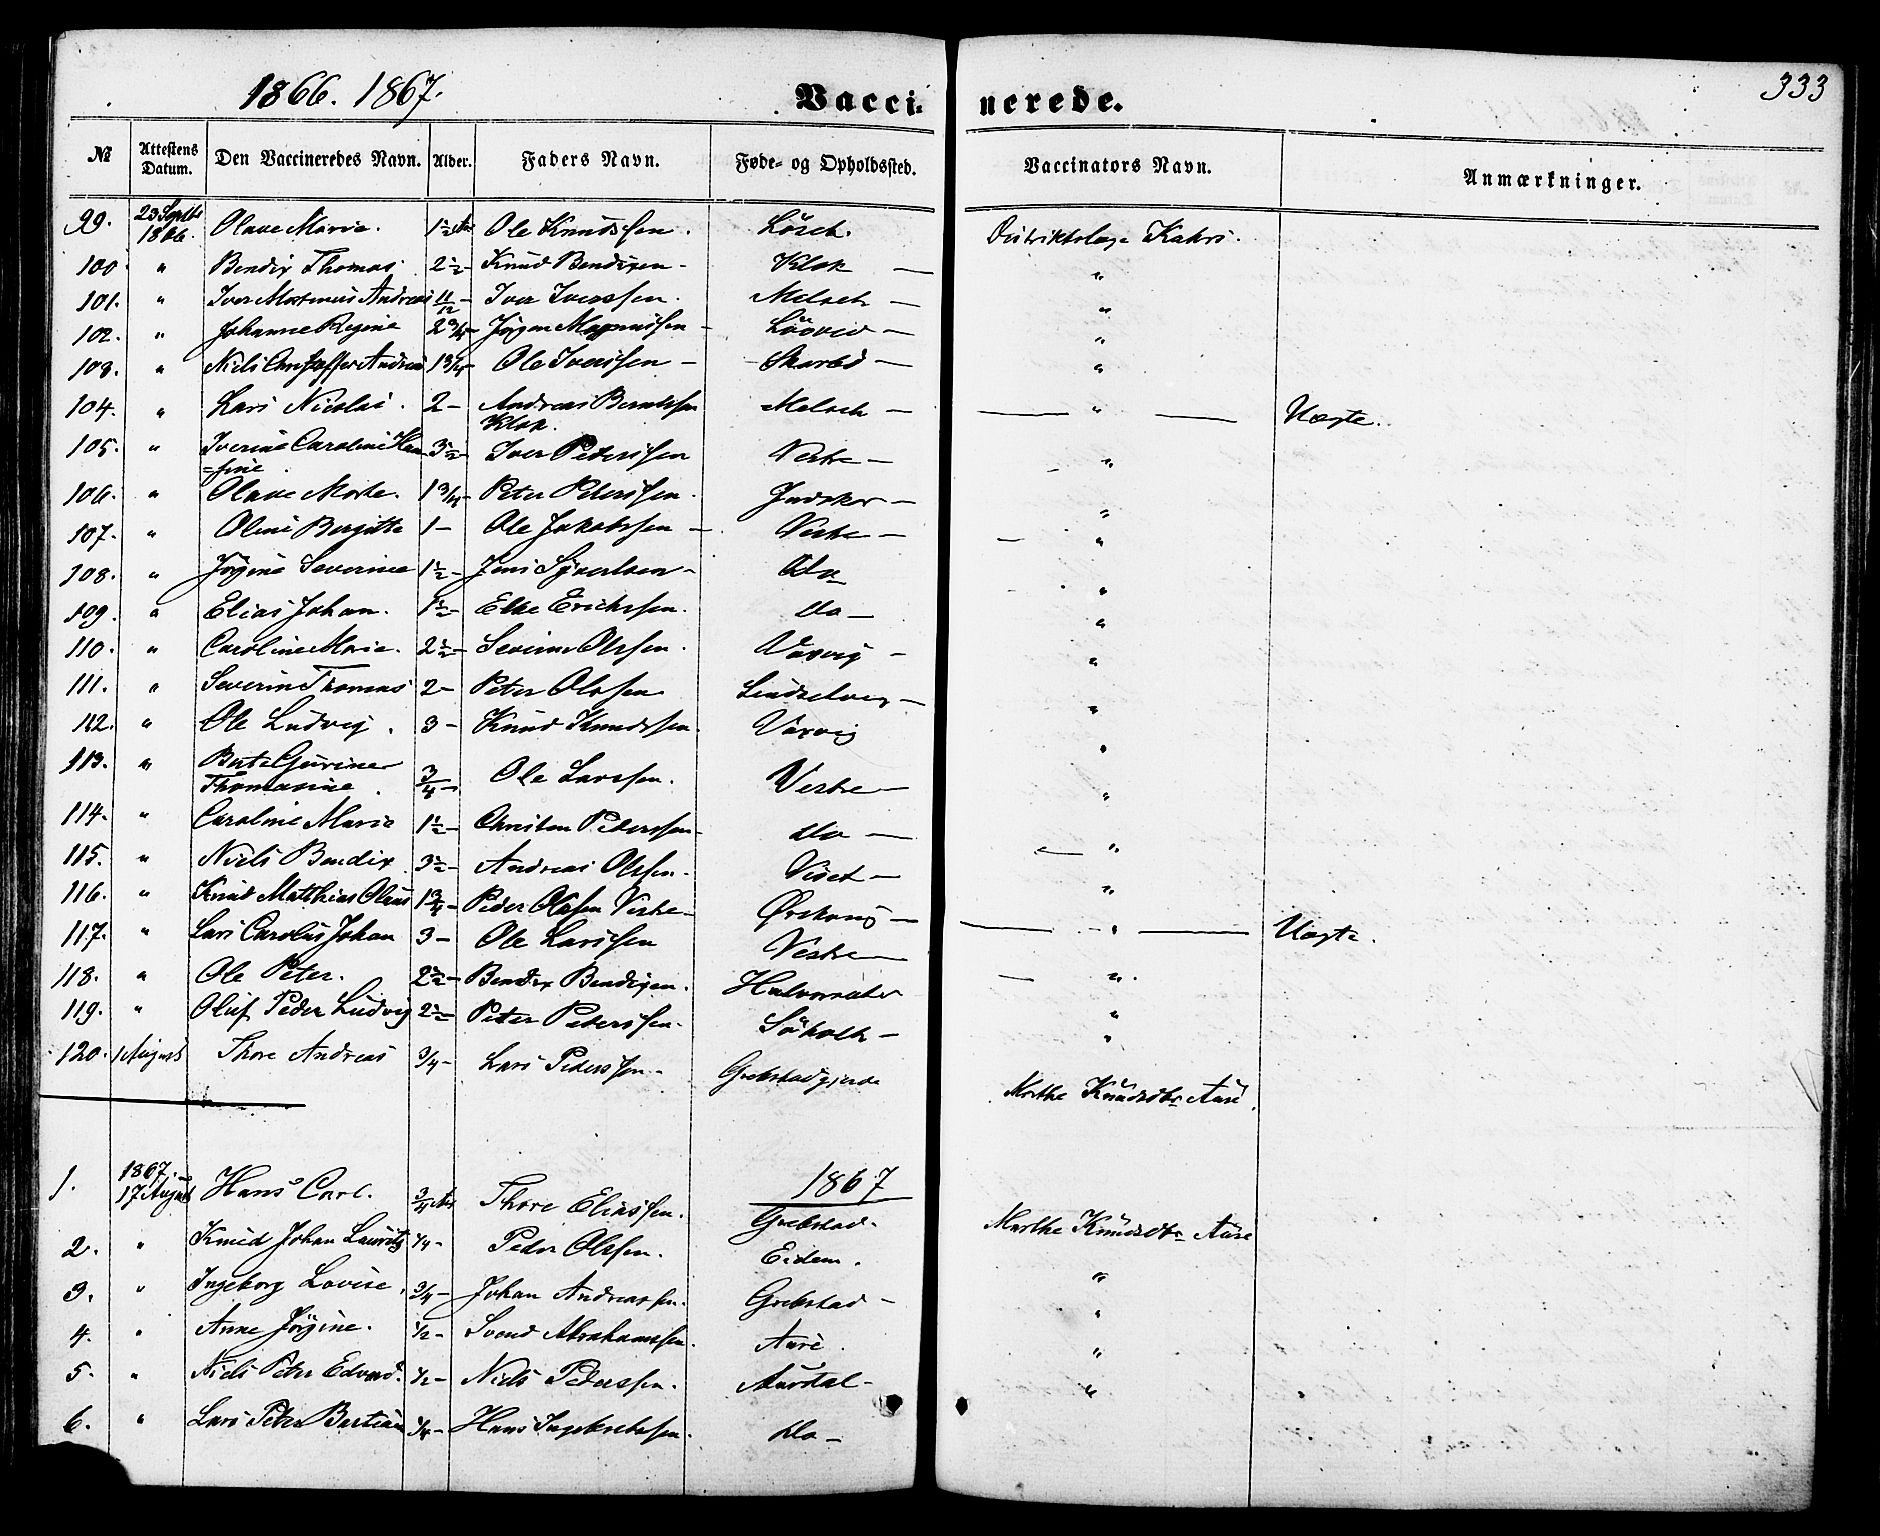 1866. 1867. Vacci- nerede. 333
№ Attestens Datum. Den Vaccineredes Navn. Alder. Faders Navn. Føde- og Opholdssted. Vaccinators Navn. Anmærkninger.
99. 23 Septbr 1866. Olave Marie. 1½ Aar Ole Knudssen. Distriktslæge
100 " Bendix Thomas 2½- Knud Bendixen- Klok — "
101. " Iver Martinus Andreas 11/12- Iver Iverssen. Melseth — "
102. " Johanne Regine 2¾- Jørgen Magnussen - Løvvig — "
103. " Niels Christoffer Andreas 1¾- Ole Iverssen — Skarbö — "
104. " Lars Nicolai. 2- Andreas Berntssen Klok. Melseth — " — Uægte.
105. " Iverine Caroline Han=sine. 3½- Iver Peterssen Vestre — "
106. " Olave Marte. 1¾- Peter Peterssen. — "
107. " Oline Bergitte 1- Ole Jakobssen — Vestre — "
108. " Jørgine Severine 1½- Jens - do "
109. " Elias Johan. 1½- Elke Erichssen. do — "
110. " Caroline Marie. 2½- Severin Olssen. Vaxvig - "
111. " Severin Thomas 2- Peter Olssen — "
112. " Ole Ludvig. 3- Knud Knudssen. Vaxvig "
113. " Berte Gurine Thomasine. ¾- Ole Larssen. Vestre — "
114. " Caroline Marie 1½- Christen Peterssen- do — "
115. " Niels Bendix 3½- Andreas Olssen- Viset — "
116. " Knud Matthias Olaus 1¾- Peder Olssen Vestre - Ørskoug — "
117. " Lars Carolus Johan 3- Ole Larssen Vestre — " — Uægte.
118. " Ole Peter. 2½- Bendix Bendixen. "
119. " Oluf Peder Ludvig 2½- Peter Peterssen. Søholt — "
120. 1 August Thore Andreas ¾- Lars Pederssen- Grebstadgjerde Marthe Knudsdtr Aure.
1. 1867. 17 August Hans Carl. ¾ Aar Thore Eliassen. 1867 Grebstad. Marthe Knudsdtr Aure
2. " Knud Johan Lauritz ¼- Peder Olssen. Eidem. "
3. " Ingeborg Lovise. ¾- Johan Andreassen. Grebstad - "
4. " Anne Jørgine. ½- Svend Abrahamssen. Aure. "
5. " Niels Peter Edvard. ½- Niels Pederssen. Aurdal- "
6. " Lars Peter Bastian ¾- Hans Ingebretssen. do -